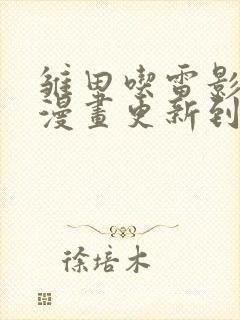 雏田喫雷影
漫畫更新到
徐培木